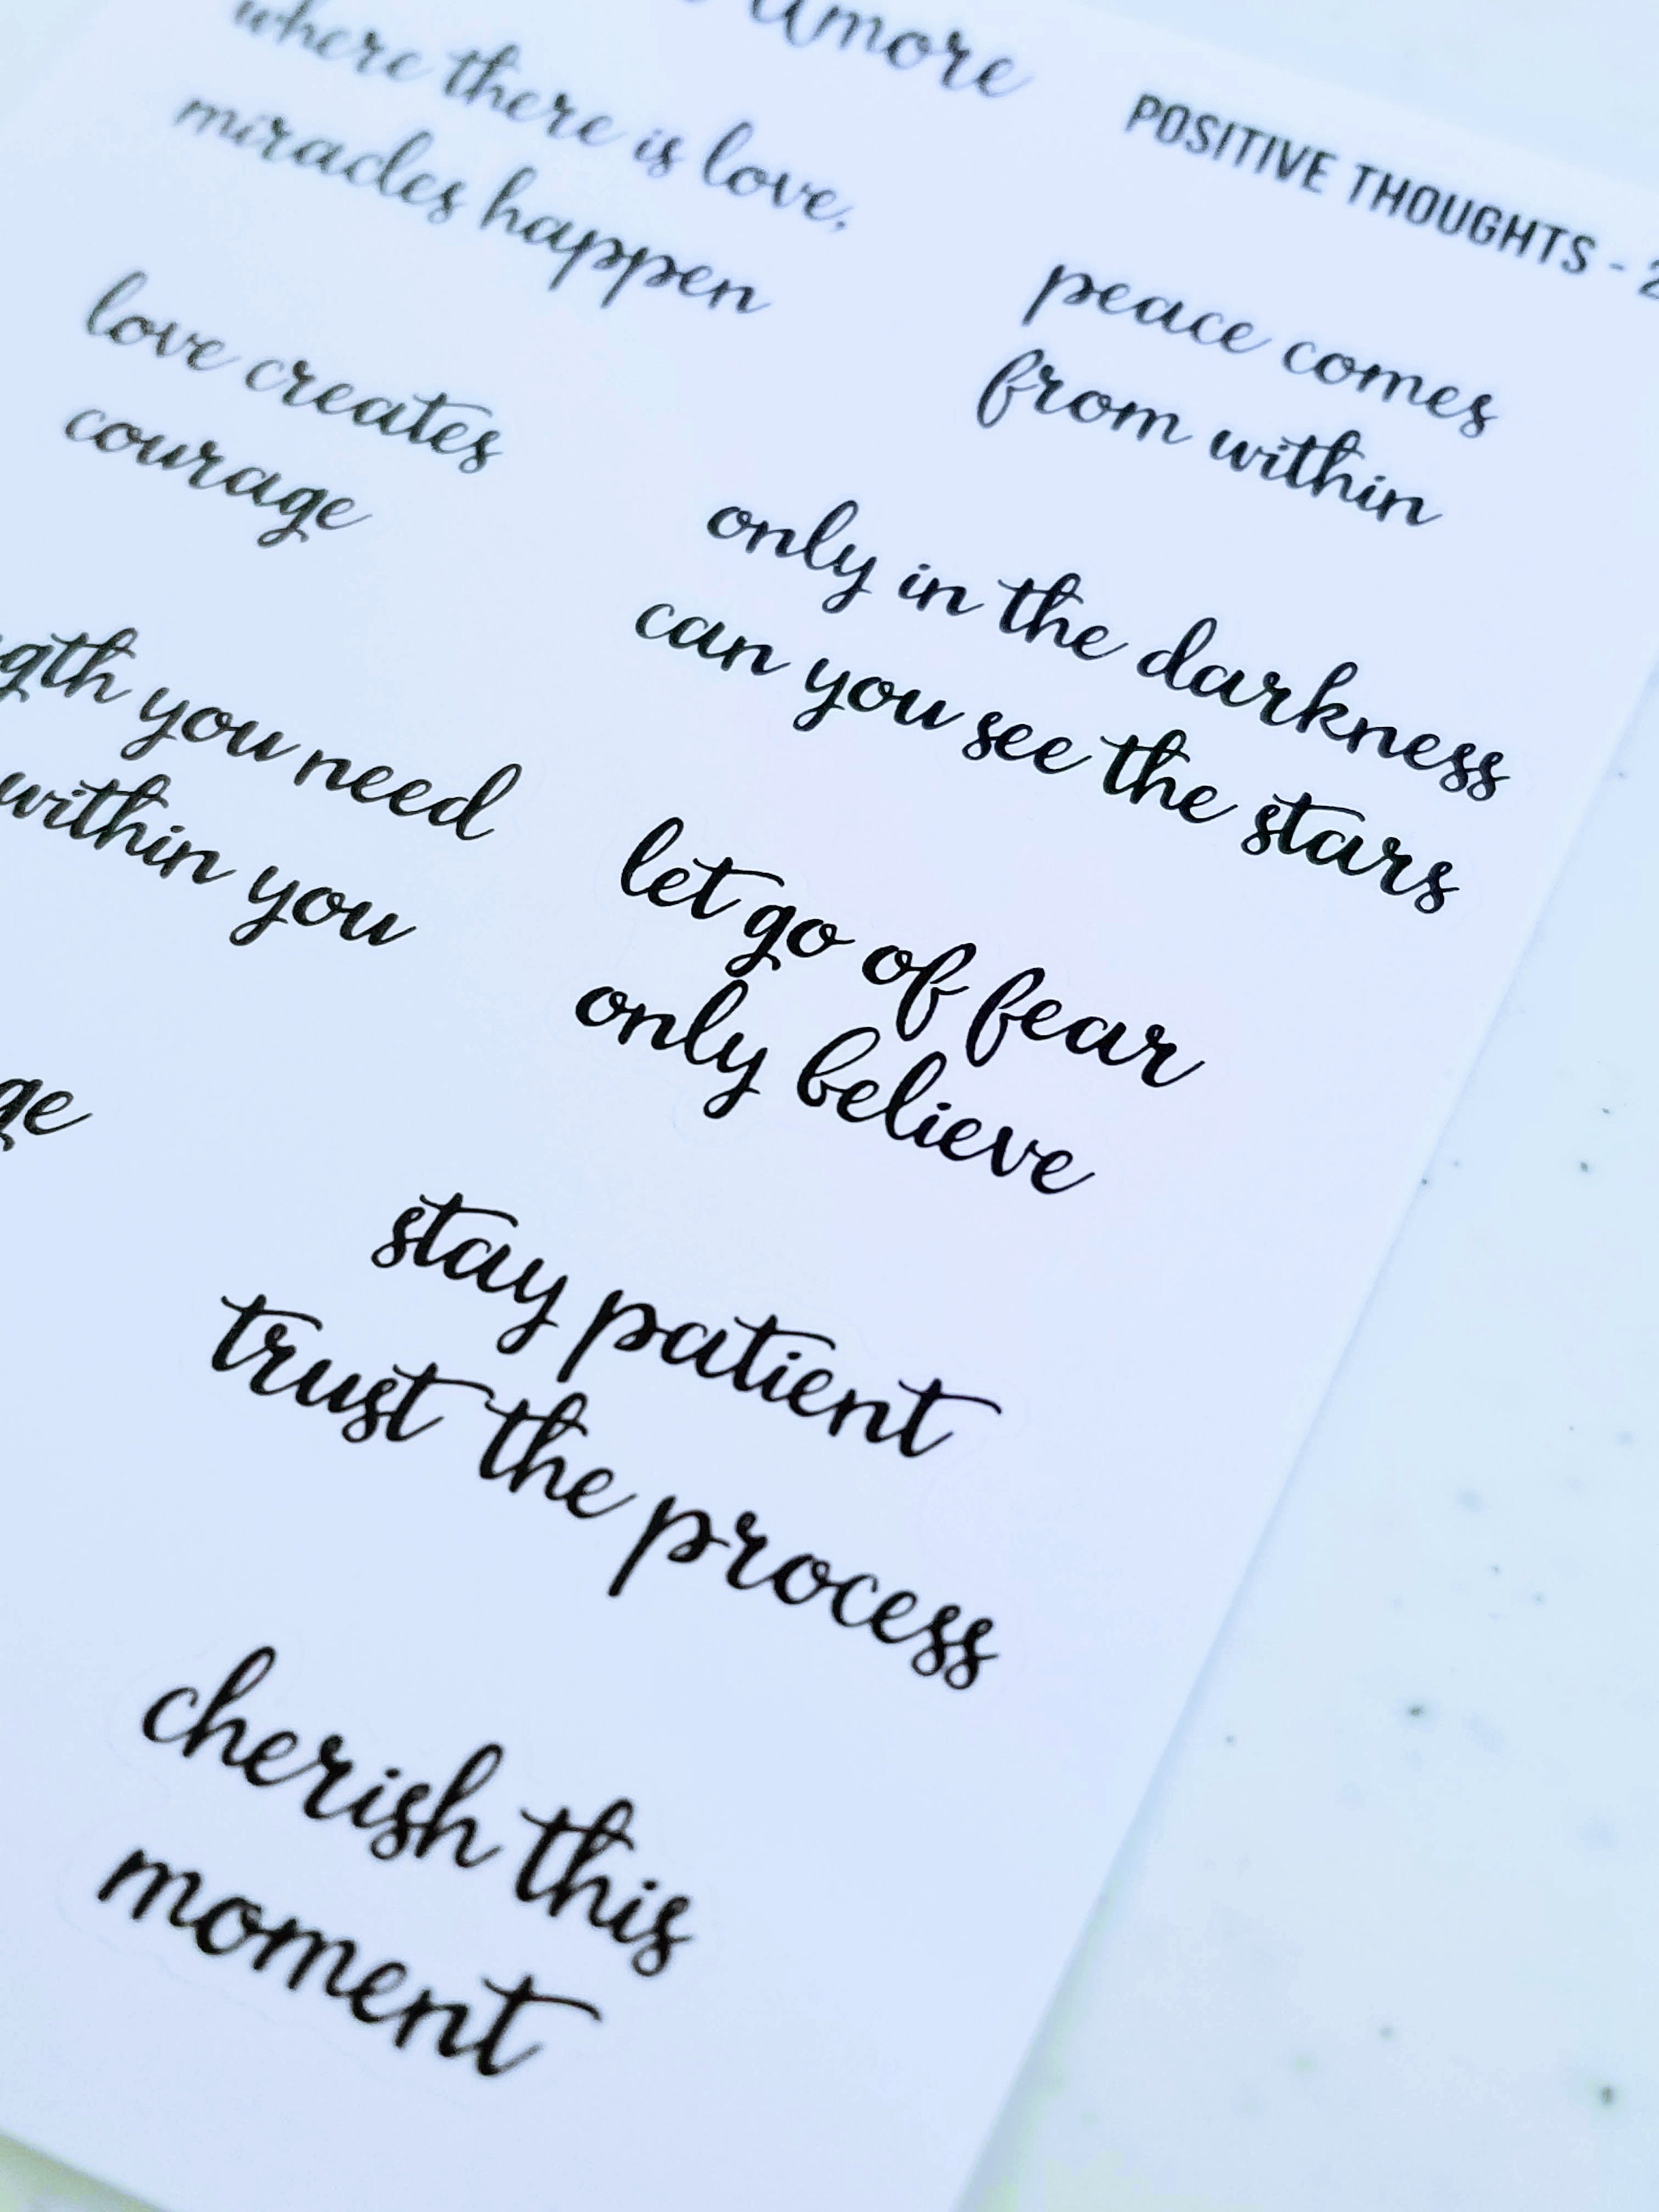 amore
where there is love,
miracles happen
love creates
courage
you need
within you
POSITIVE THOUGHTS - 2
peace comes
from within
only in the darkness
can you see the stars
let go of fear
only believe
stay patient
trust the process
cherish this
moment